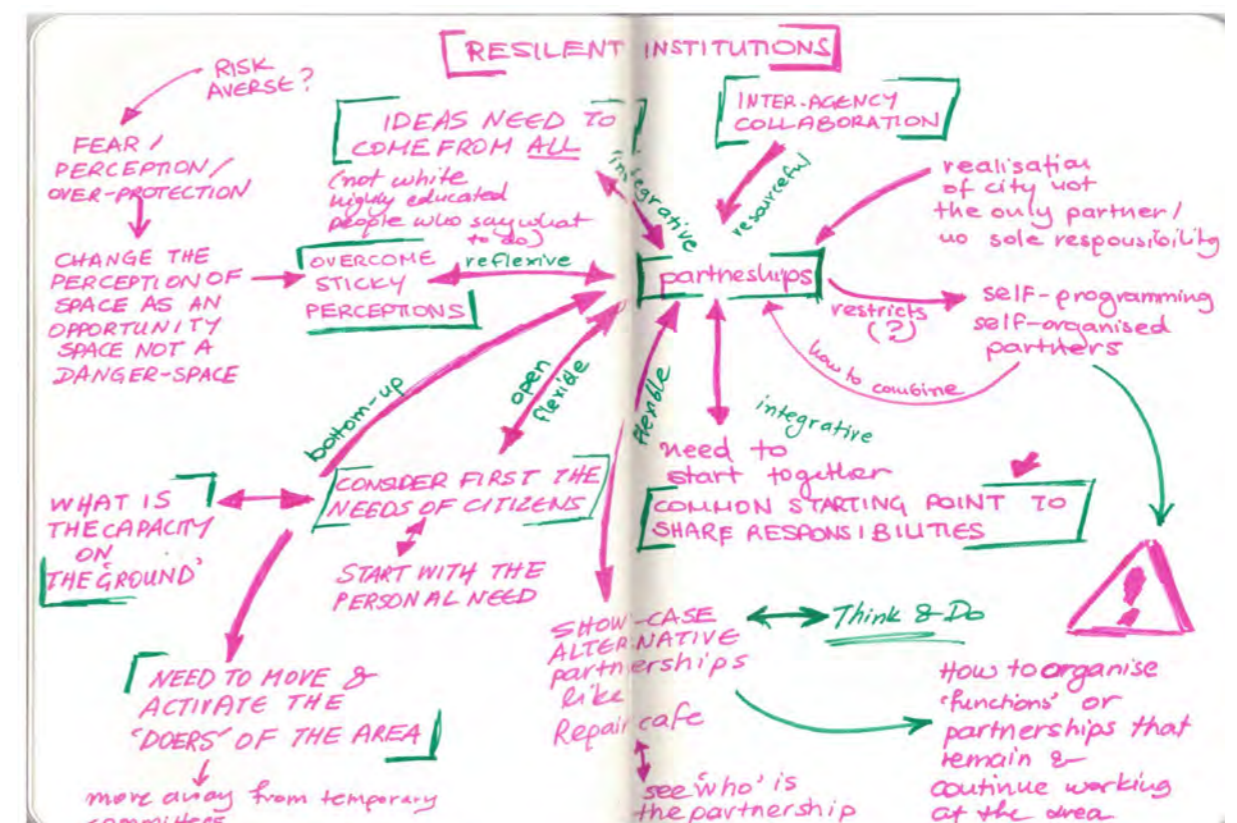 RESILENT INSTITUTIONS
RISK
AVERSE?
FEAR /
PERCEPTION /
OVER-PROTECTION
CHANGE THE
PERCEPTION OF
SPACE AS AN
OPPORTUNITY
SPACE NOT A
DANGER-SPACE
IDEAS NEED TO
COME FROM ALL
(not white
highly educated
people who say what
to do)
OVERCOME
STICKY
PERCEPTIONS
reflexive
integrative
INTER-AGENCY
COLLABORATION
resourceful
realisation
of city not
the only partner /
no sole responsibility
partneships
restricts
(?)
self-programming
self-organised
partners
how to combine
bottom-up
open
flexide
flexible
integrative
need to
start together
COMMON STARTING POINT TO
SHARE RESPONSIBILITIES
WHAT IS
THE CAPACITY
ON
'THE GROUND'
CONSIDER FIRST THE
NEEDS OF CITIZENS
START WITH THE
PERSONAL NEED
NEED TO MOVE &
ACTIVATE THE
'DOERS' OF THE AREA
more away from temporary
committees
SHOW-CASE
ALTERNATIVE
partnerships
like
Repair cafe
see 'who' is
the partnership
Think & Do
!
How to organise
'functions' or
partnerships that
remain &
continue working
at the area